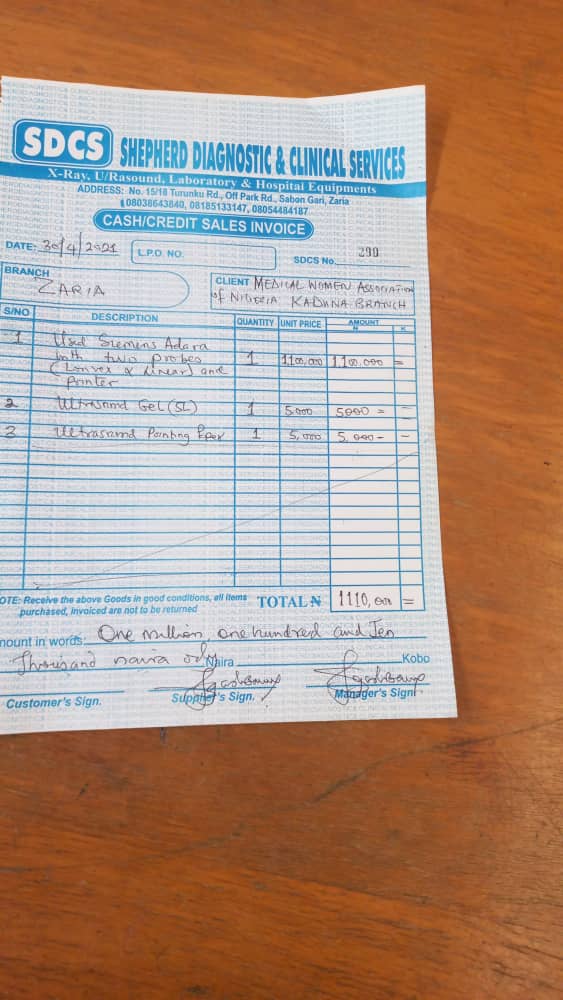 SDCS SHEPHERD DIAGNOSTIC & CLINICAL SERVICES
X-Ray, U/Rasound, Laboratory & Hospital Equipments
ADDRESS: No. 15/18 Turunku Rd., Off Park Rd., Sabon Gari, Zaria
08038643840, 08185133147, 08054484187
CASH/CREDIT SALES INVOICE
DATE: 30/4/2021 L.P.O. NO. SDCS No. 290
BRANCH ZARIA
CLIENT MEDICAL WOMEN ASSOCIATION
of NIGERIA KADUNA BRANCH
S/NO DESCRIPTION QUANTITY UNIT PRICE AMOUNT
N K
1 Used Siemens Adara
with two probes 1 1,100,000 1,100,000 =
(Convex & Linear) and
Printer
2 Ultrasound Gel (5L) 1 5000 5000 = =
3 Ultrasound Printing Paper 1 5,000 5,000 - -
OTE: Receive the above Goods in good conditions, all items
purchased, invoiced are not to be returned
TOTAL ₦ 1110,000 =
mount in words: One million, one hundred and Ten
Thousand naira only Naira Kobo
Customer's Sign. Supplier's Sign. Manager's Sign.